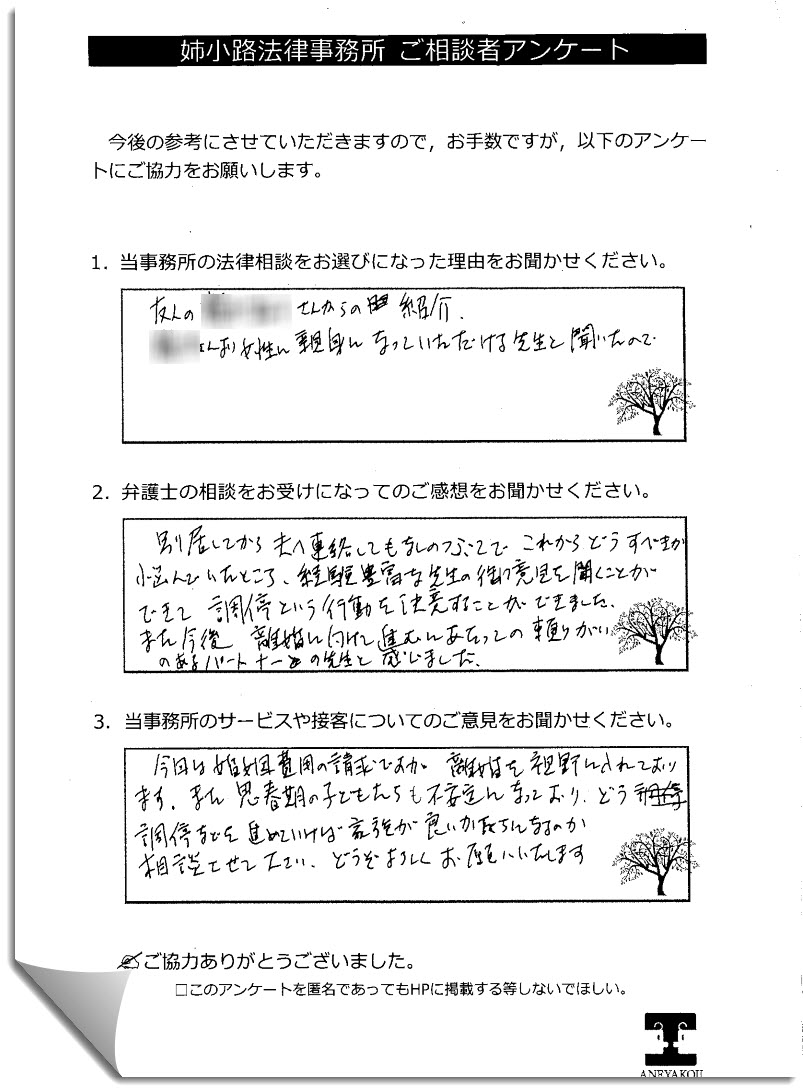 姉小路法律事務所 ご相談者アンケート
今後の参考にさせていただきますので，お手数ですが，以下のアンケー
トにご協力をお願いします。
1．当事務所の法律相談をお選びになった理由をお聞かせください。
友人の さんからの 紹介.
さんより女性に親身になっていただける先生と聞いたので
2．弁護士の相談をお受けになってのご感想をお聞かせください。
別居してから夫へ連絡してもなしのつぶてで これからどうすべきか
悩んでいたところ、経験豊富な先生の御意見を聞くことが
できて 調停という行動を決意することができました.
また今後 離婚に向けて進むにあたっての頼りがい
のあるパートナーの先生と感じました.
3．当事務所のサービスや接客についてのご意見をお聞かせください。
今回は婚姻費用の請求ですが 離婚を視野に入れており
ます. また思春期の子どもたちも不安定になっており. どう
調停などを進めていけば家族が良いかたちになるのか
相談させて下さい. どうぞよろしくお願いいたします
ご協力ありがとうございました。
□このアンケートを匿名であってもHPに掲載する等しないでほしい。
ANEYAKOU